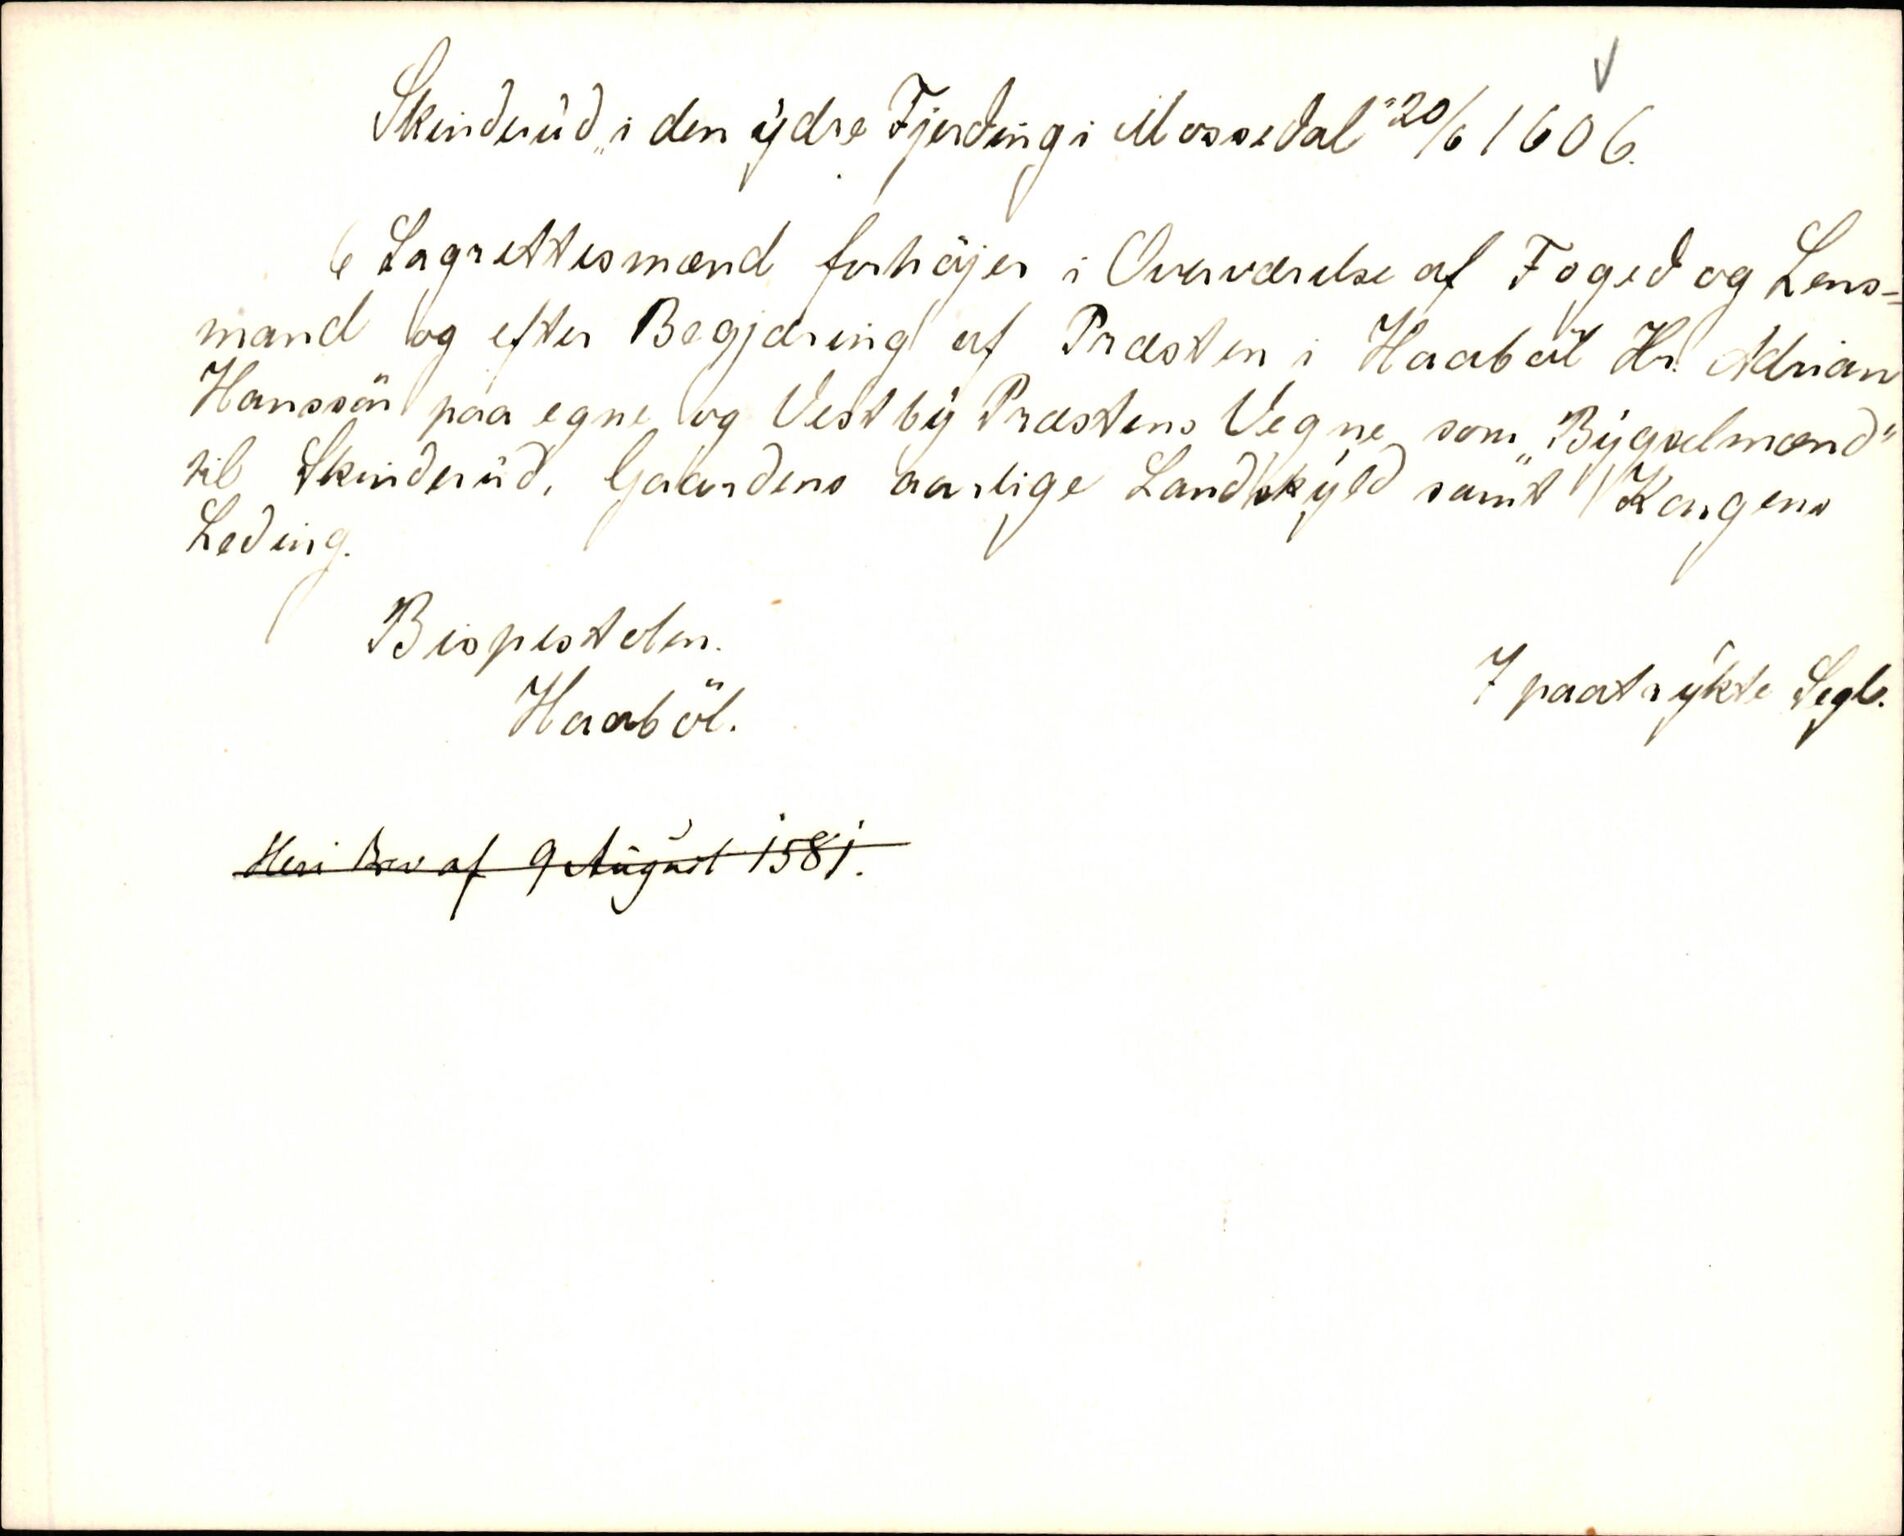 Skinderud „i den ydre Fjerding i Mossedal" 20/6 1606.
6 Lagrettesmænd forhöjer i Overværelse af Foged og Lens-
mand og efter Begjæring af Præsten i Haaböl Hr. Adrian
Hanssön paa egne og Vestby Præstens Vegne som „Bygselmænd"
til Skinderud, Gaardens aarlige Landskyld samt Kongens
Leding.
Bispestolen.
Haaböl.
7 paatrykte Segl.
Heri Brev af 9 August 1581.